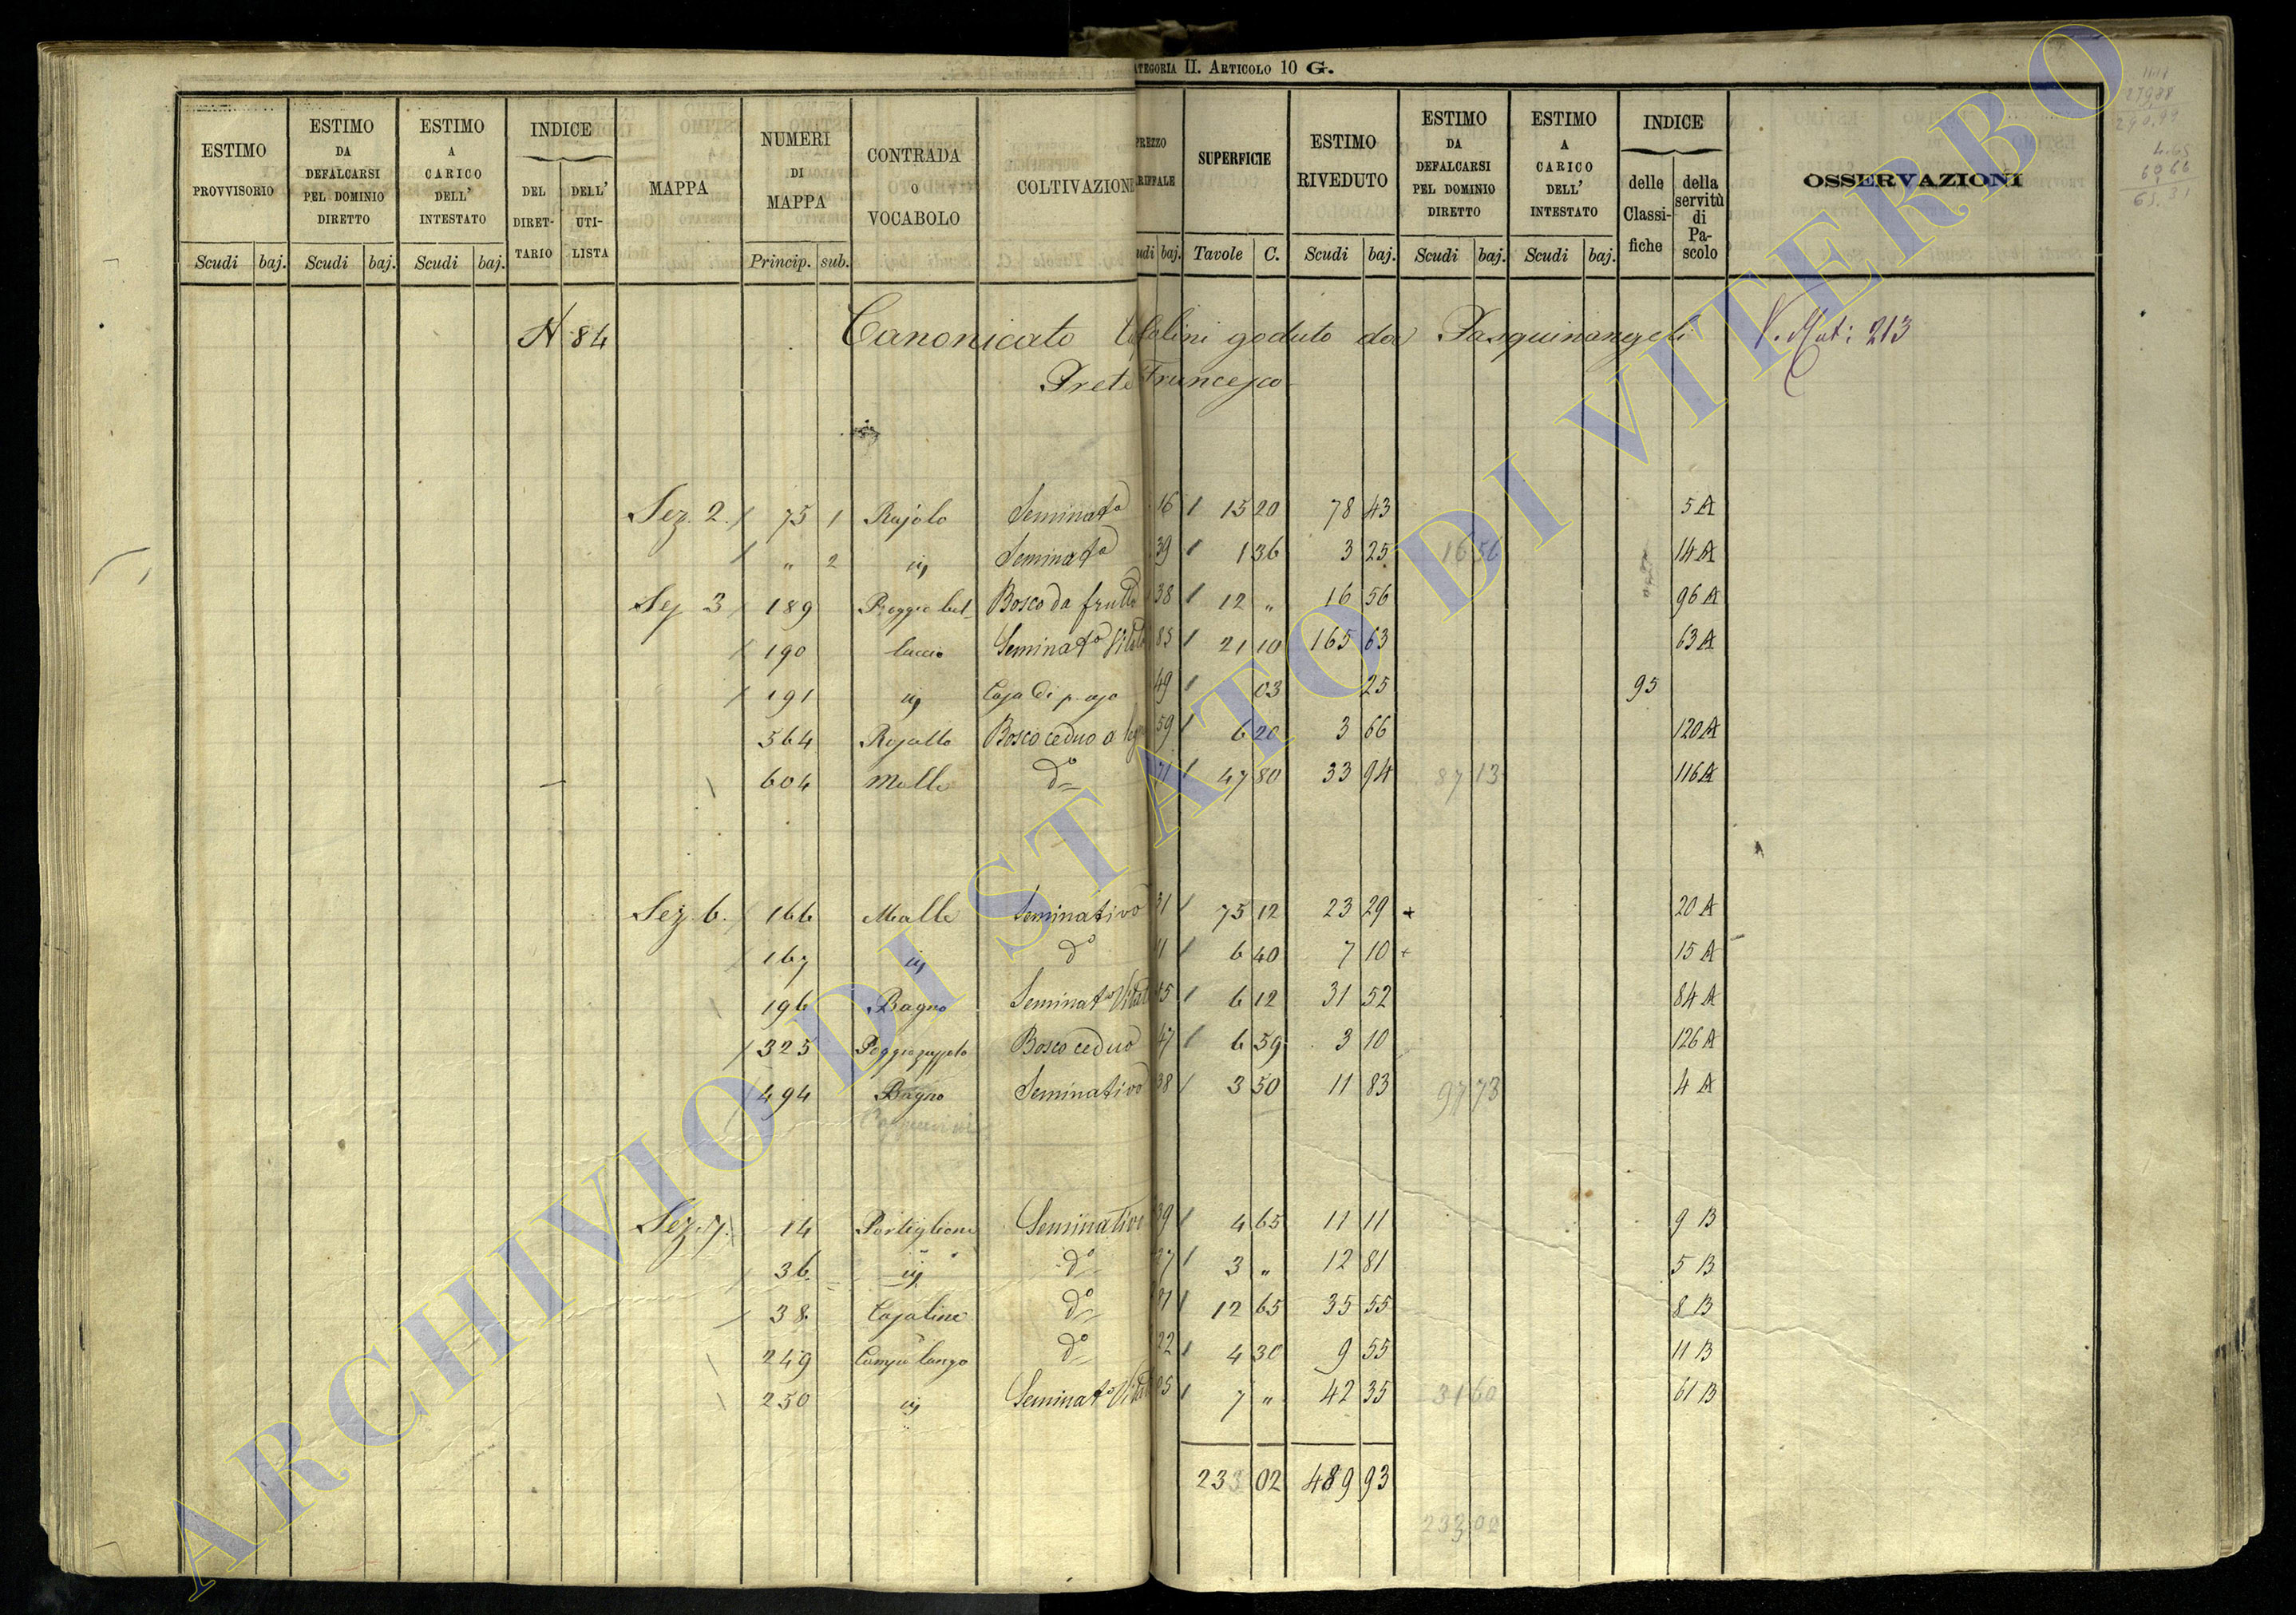 ATEGORIA II. ARTICOLO 10 G.
ESTIMO PROVVISORIO Scudi baj.
ESTIMO DA DEFALCARSI PEL DOMINIO DIRETTO Scudi baj.
ESTIMO A CARICO DELL' INTESTATO Scudi baj.
INDICE DEL DIRET-TARIO DELL' UTI-LISTA
MAPPA
NUMERI DI MAPPA Princip. sub.
CONTRADA O VOCABOLO
COLTIVAZION
PREZZO RIFFALE udi baj.
SUPERFICIE Tavole C.
ESTIMO RIVEDUTO Scudi baj.
ESTIMO DA DEFALCARSI PEL DOMINIO DIRETTO Scudi baj.
ESTIMO A CARICO DELL' INTESTATO Scudi baj.
INDICE delle Classi-fiche della servitù di Pa-scolo
OSSERVAZIONI
N 84 Canonicato goduto da Pasquinangeli V. Mut: 213
Prete Francesco
Sez. 2. 75 1 Rajolo Seminato 16 15 20 78 43 5 A
" 2 Seminato 39 1 36 3 25 16 56 14 A
Sez 3 189 Poggio bel Bosco da frutto 38 12 " 16 56 96 A
190 luccio Seminato Vitato 85 21 10 165 63 63 A
191 Casa di p. 49 03 25 95
564 Bosco ceduo a 59 6 20 3 66 120 A
604 Molle do 71 47 80 33 94 87 13 116 A
Sez 6. 166 Molle Seminativo 31 75 12 23 29 + 20 A
167 do 11 6 40 7 10 + 15 A
196 Bagno Seminato Vitat 15 6 12 31 52 84 A
325 Bosco ceduo 47 6 59 3 10 126 A
494 Bagno Seminativo 38 3 50 11 83 97 73 4 A
Sez. 7. 14 Portiglione Seminativo 39 4 65 11 11 9 B
36. do 27 3 " 12 81 5 B
38. Casaline do 12 65 35 55 8 B
249 Campo lungo do 22 4 30 9 55 11 B
250 Seminato Vitat 05 7 " 42 35 31 60 61 B
233 02 489 93
233 02
ARCHIVIO DI STATO DI VITERBO